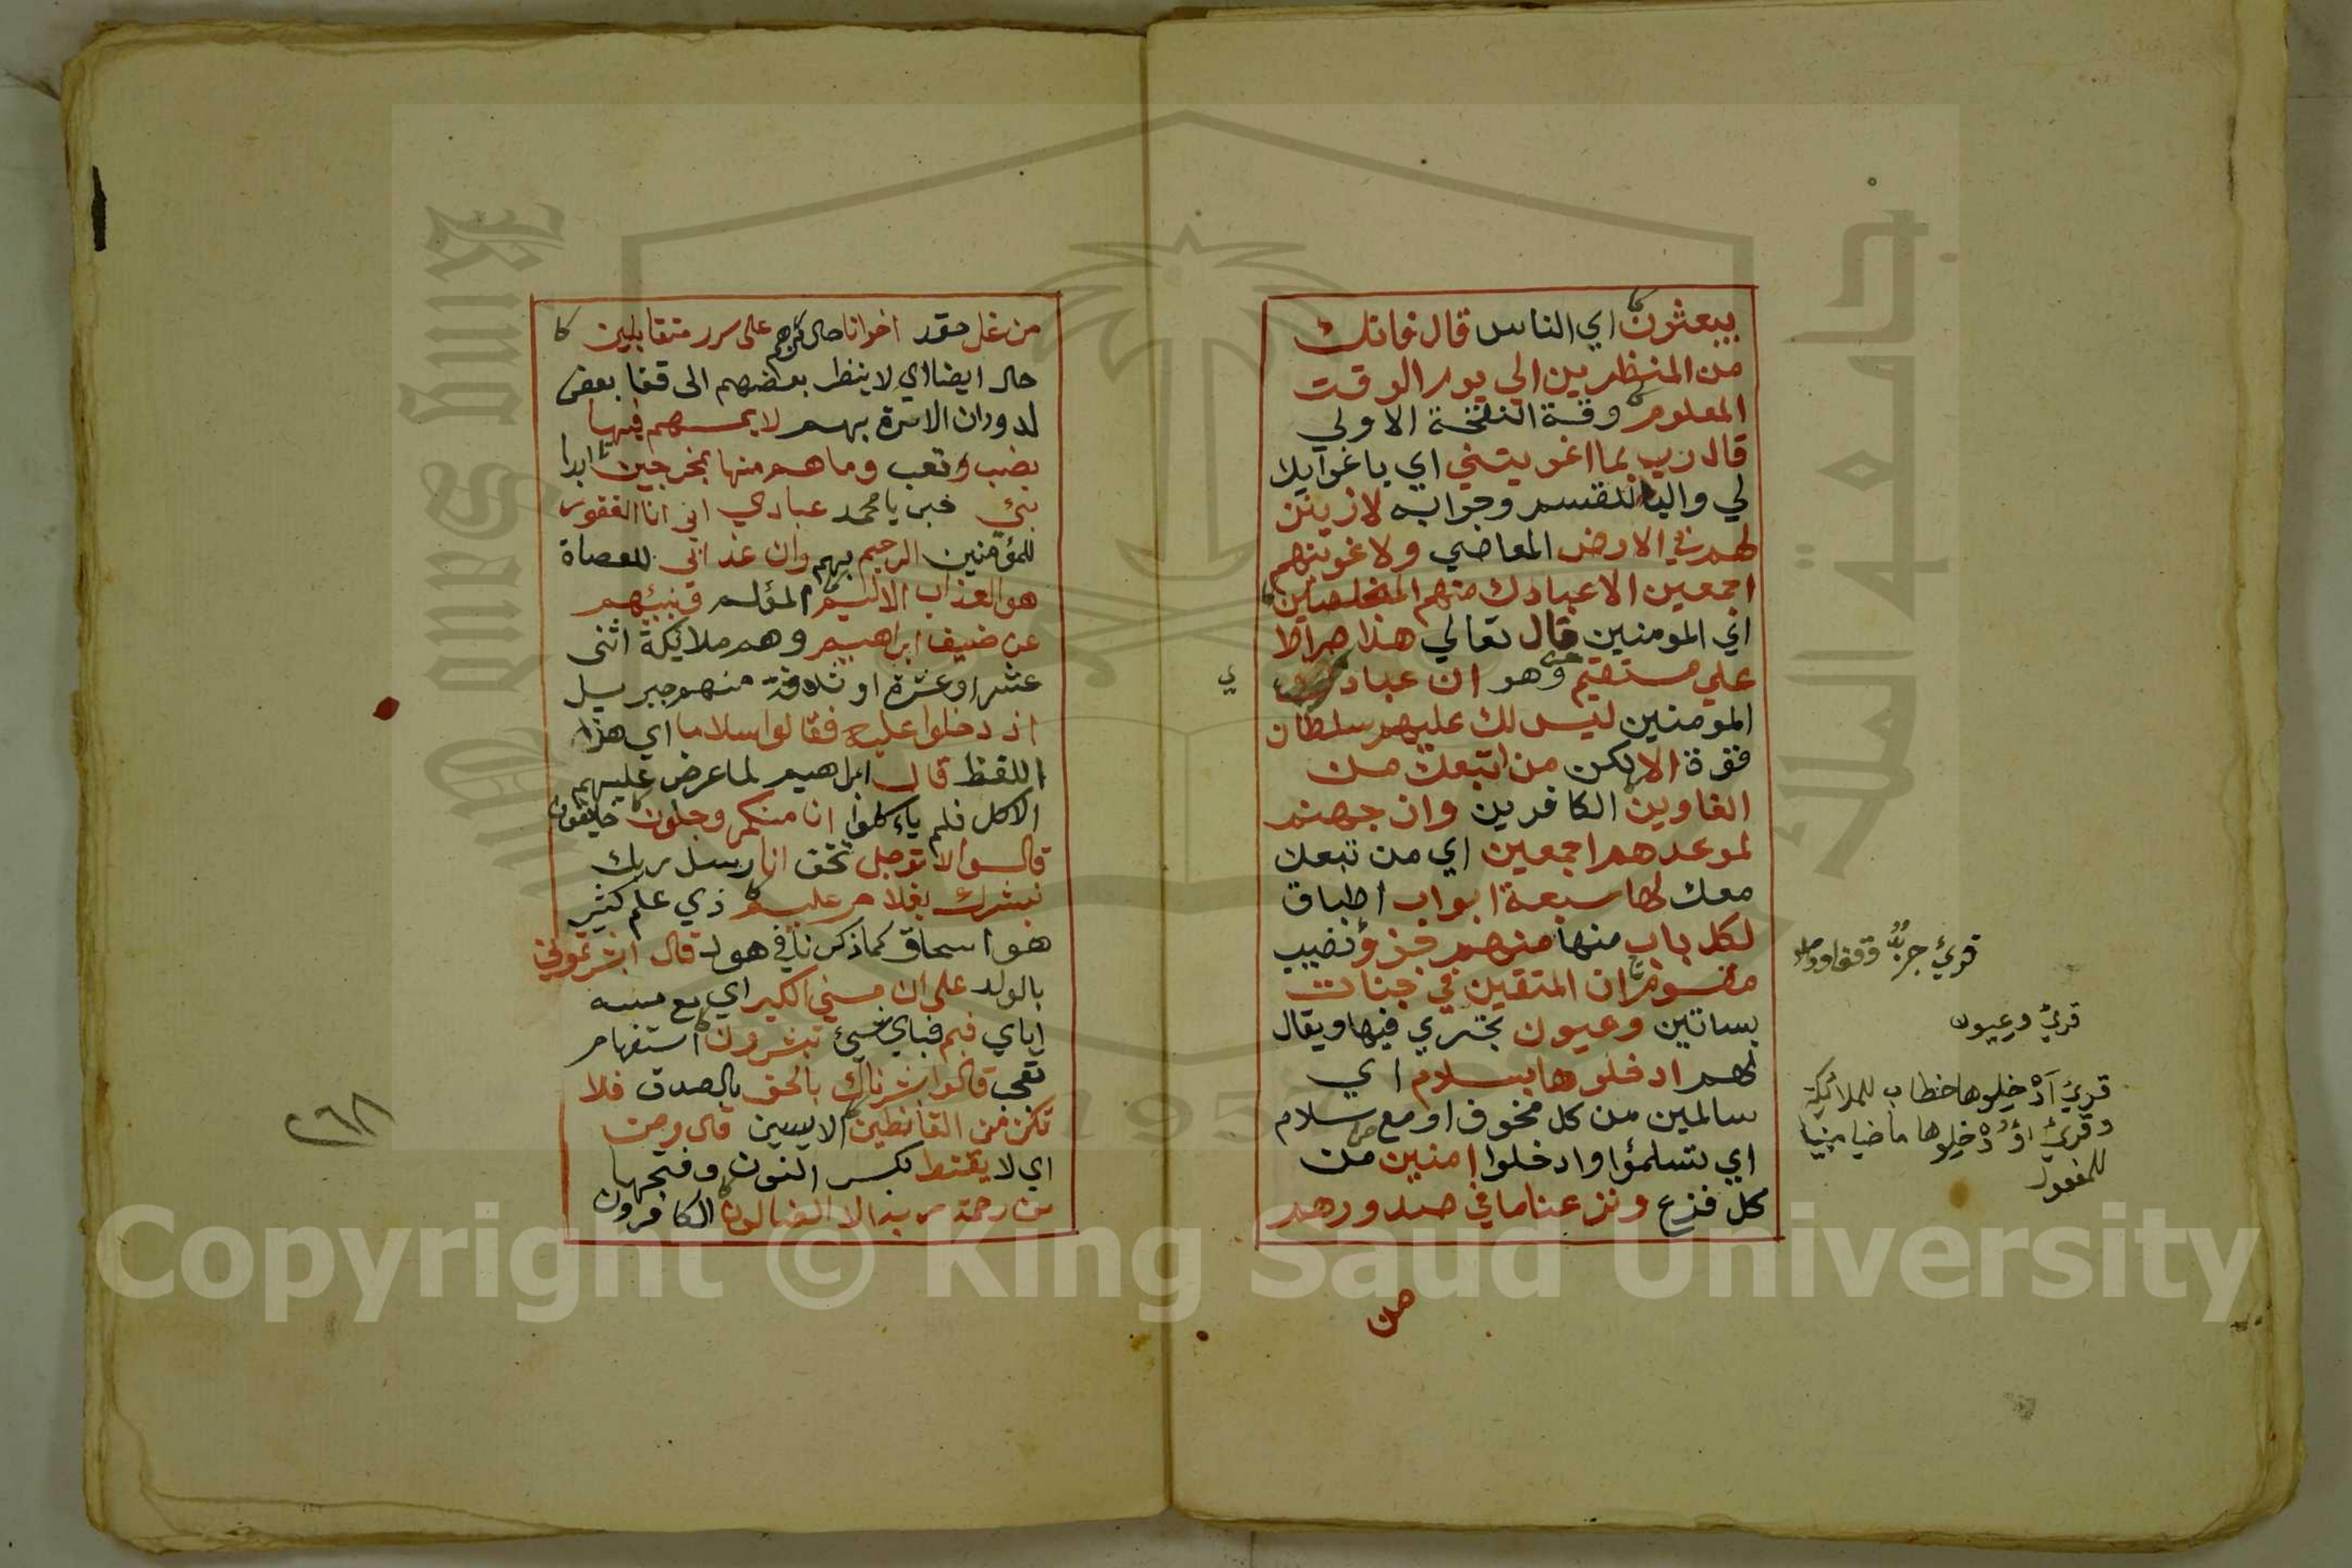 يبعثون اي الناس قال فانك
من المنظرين الي يوم الوقت
المعلوم وقت النفخة الاولي
قال رب بما اغويتني اي باغوايك
لي والبا للقسم وجوابه لازينن
لهم في الارض المعاصي ولاغوينهم
اجمعين الا عبادك منهم المخلصين
اي المومنين قال تعالي هذا صراط
علي مستقيم وهو ان عبادي
المومنين ليس لك عليهم سلطان
قوة الا لكن من اتبعك من
الغاوين الكافرين وان جهنم
لموعدهم اجمعين اي من تبعك
معك لها سبعة ابواب اطباق
لكل باب منها منهم جزؤ نصيب
مقسوم ان المتقين في جنات
بساتين وعيون تجري فيها ويقال
لهم ادخلوها بسلام اي
سالمين من كل مخوف او مع سلام
اي تسلموا وادخلوا امنين من
كل فزع ونزعنا ما في صدورهم
من
ي
قرئ جزّ وقفا ووصلا
قرئ وعيون
قرئ أدخلوها خطاب للملائكة
وقرئ أدخلوها ماضيا مبنيا
للمفعول
من غل حقد اخوانا حال منهم على سرر متقابلين
حال ايضا اي لا ينظر بعضهم الى قفا بعض
لدوران الاسرة بهم لا يمسهم فيها
نصب وتعب وما هم منها بمخرجين ابدا
نبئ خبر يا محمد عبادي اني انا الغفور
للمؤمنين الرحيم بهم وان عذابي للعصاة
هو العذاب الاليم المؤلم ونبئهم
عن ضيف ابراهيم وهم ملايكة اثنى
عشر او عشرة او ثلاثة منهم جبريل
اذ دخلوا عليه فقالوا سلاما اي هذا
اللفظ قال ابراهيم لما عرض عليهم
الاكل فلم ياكلوا انا منكم وجلون خايفون
قالوا لا توجل تخف انا رسل ربك
نبشرك بغلام عليم ذي علم كثير
هو اسحاق كما ذكرنا في هود قال ابشرتموني
بالولد على ان مسني الكبر اي مع مسه
اياي فبم فباي شيئ تبشرون استفهام
تعجب قالوا بشرناك بالحق بالصدق فلا
تكن من القانطين الايسين قال ومن
اي لا يقنط بكسر النون وفتحها
من رحمة ربه الا الضالون الكافرون
٢٦٨
Copyright © King Saud University
King Saud University
جامعة الملك
1957